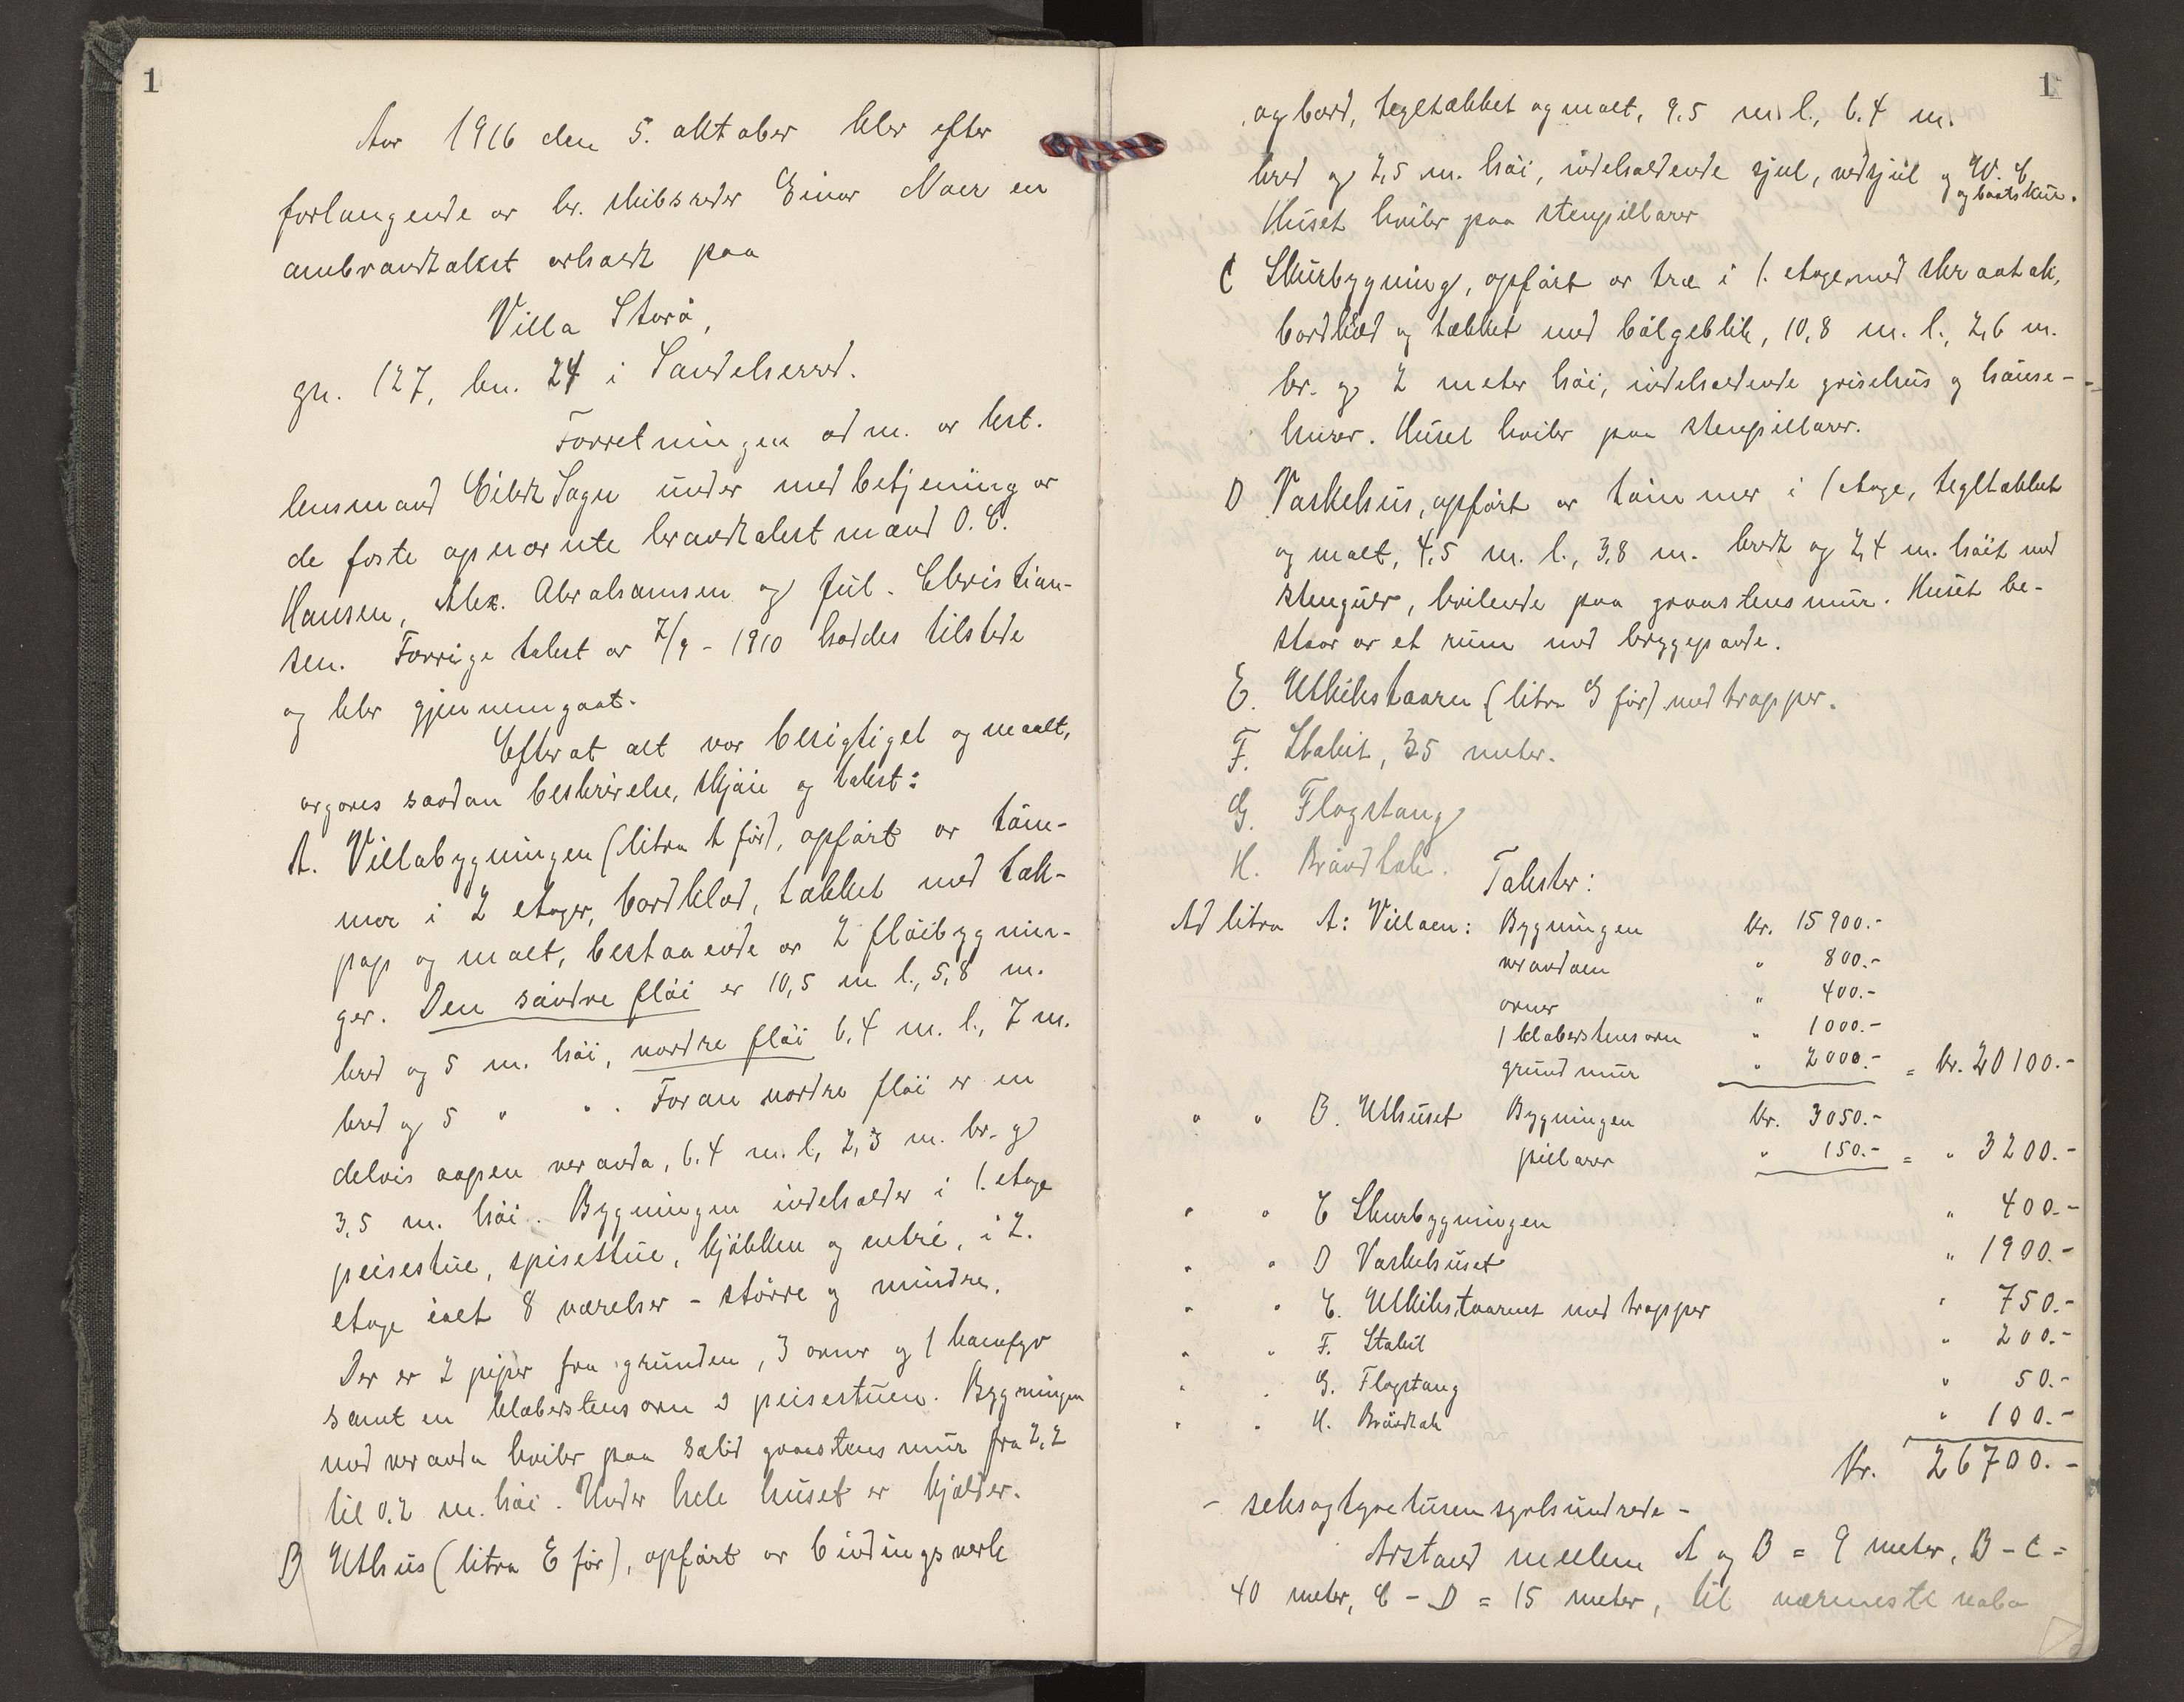 1
Aar 1916 den 5. oktober blev efter
forlangende av hr. skibsreder Einar Naer en
ombrandtakst avholdt paa
Villa Storö,
gn. 127, bn. 24 i Sandeherred.
Forretningen adm. av kst.
lensmand Eilert Sagen under medbetjening av
de faste opnævnte brandtakstmænd O. C.
Hansen, Alex. Abrahamsen og Jul. Christian-
sen. Forrige takst av 7/9 - 1910 haddes tilstede
og blev gjennemgaat.
Efterat alt var besigtiget og maalt,
avgaves saadan beskrivelse, skjön og takst:
A. Villabygningen (litra A för), opfört av töm-
mer i 2 etager, bordklæd, tækket med tak-
pap og malt, bestaaende av 2 flöibygnin-
ger. Den söndre flöi er 10,5 m. l., 5,8 m.
bred og 5 m. höi, nordre flöi 6,4 m. l., 7 m.
bred og 5 " ". Foran nordre flöi er en
delvis aapen veranda, 6.4 m. l, 2,3 m. br. og
3,5 m. höi. Bygningen indeholder i 1. etage
peisestue, spisestue, kjökken og entré, i 2.
etage ialt 8 værelser - större og mindre.
Der er 2 piper fra grunden, 3 ovner og 1 komfyr
samt en klæberstensovn i peisestuen. Bygningen
med veranda hviler paa solid graastensmur fra 2,2
til 0,2 m. höi. Under hele huset er kjælder.
B Uthus (litra E för), opfört av bindingsverk
1
og bord, tegltækket og malt, 9,5 m. l., 6.4 m.
bred og 2,5 m. höi, indeholdende skjul, vedskjul og W. C.
og baatskur.
Huset hviler paa stenpillarer
C Skurbygning, opfört av træ i 1. etage med skraatak,
bordklæd og tækket med bölgeblik, 10,8 m. l., 2,6 m.
br. og 2 meter höi, indeholdende grisehus og hönse-
hus. Huset hviler paa stenpillarer.
D Vaskehus, opfört av tömmer i 1 etage, tegltækket
og malt, 4,5 m. l., 3,8 m. bredt og 2,4 m. höit med
stengulv, hvilende paa graastensmur. Huset be-
staar av et rum med bryggepande.
E. Utkikstaarn (litra G för) med trapper.
F. Stakit, 35 meter.
G. Flagstang
H. Bröndtak.
Takster:
Ad litra A: Villaen: Bygningen kr. 15900.-
verandaen " 800.-
ovner " 400.-
1 klæberstensovn " 1000.-
grundmur " 2000.- = kr. 20100.-
" " B. Uthuset Bygningen kr. 3050.-
pillarer " 150.- = " 3200.-
" " C Skurbygningen " 400.-
" " D Vaskehuset " 1900.-
" " E. Utkikstaarnet med trapper " 750.-
" " F. Stakit " 200.-
" " G. Flagstang " 50.-
" " H. Bröndtak " 100.-
Kr. 26700.-
- seksogtyvetusensyvhundrede -
Avstand mellem A og B = 9 meter, B - C =
40 meter, C - D = 15 meter, til nærmeste nabo